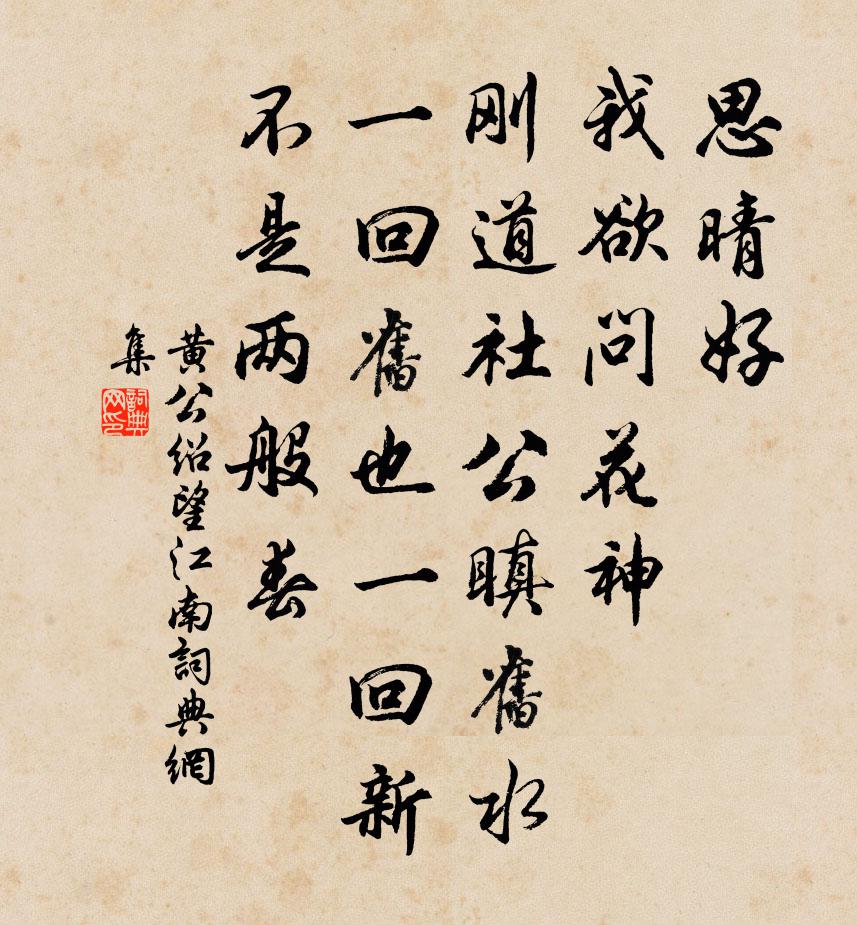 思晴好
我欲问花神
刚道社公瞋舊水
一回舊也一回新
不是两般春
黄公绍望江南詞典網
集
詞典
网印